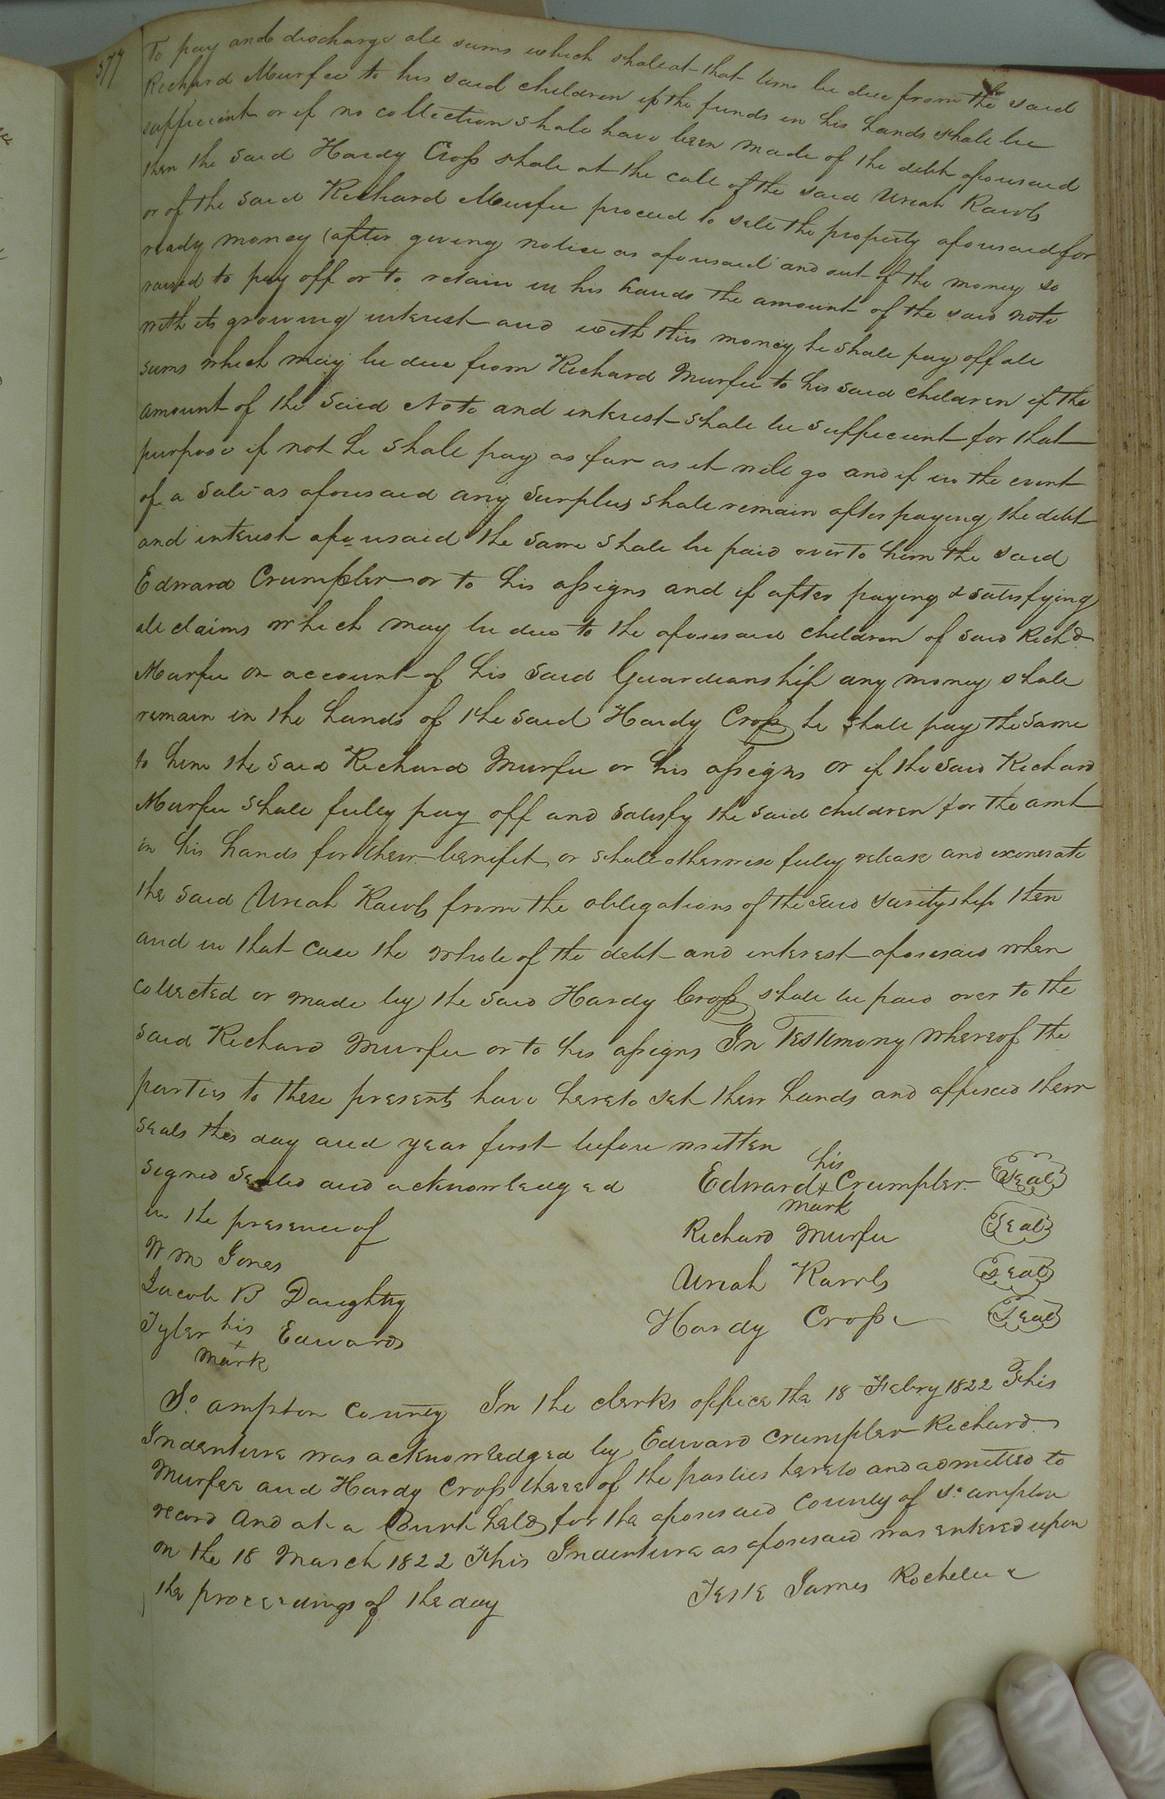 577
To pay and discharge all sums which shall at that time be due from the said
Richard Murfee to his said children if the funds in his hands shall be
sufficient or if no collection shall have been made of the debt aforesaid
then the said Hardy Cross shall at the call of the said Uriah Rawls
or of the said Richard Murfee proceed to sell the property aforesaid for
ready money (after giving notice as aforesaid and out of the money so
raised to pay off or to retain in his hands the amount of the said note
with its growing interest and with this money he shall pay off all
sums which may be due from Richard Murfee to his said children if the
amount of the said Note and interest shall be sufficient for that
purpose if not he shall pay as far as it will go and if in the event
of a sale as aforesaid any surplus shall remain after paying the debt
and interest aforesaid the same shall be paid over to him the said
Edward Crumpler or to his assigns and if after paying & satisfying
all claims which may be due to the aforesaid children of said Richd
Murfee on account of his said Guardianship any money shall
remain in the hands of the said Hardy Cross he shall pay the same
to him the said Richard Murfee or his assigns or if the said Richard
Murfee shall fully pay off and satisfy the said children for the amt
in his hands for their benifit or shall otherwise fully release and exonerate
the said Uriah Rawls from the obligations of the said surityship then
and in that case the whole of the debt and interest aforesaid when
collected or made by the said Hardy Cross shall be paid over to the
said Richard Murfee or to his assigns In Testimony whereof the
parties to these presents have hereto set their hands and affixed their
seals this day and year first before written
Signed Sealed and acknowledged
in the presence of
Wm Jones
Jacob B Daughtry
Tyler his Edwards
+
mark
his
Edward + Crumpler Seal
mark
Richard Murfee Seal
Uriah Rawls Seal
Hardy Cross Seal
So ampton County In the clerks office the 18 Febry 1822 This
Indenture was acknowledged by Edward Crumpler Richard
Murfee and Hardy Cross three of the parties hereto and admitted to
record And at a Court held for the aforesaid County of So ampton
on the 18 March 1822 This Indenture as aforesaid was entered upon
the proceedings of the day
Teste James Rochelle